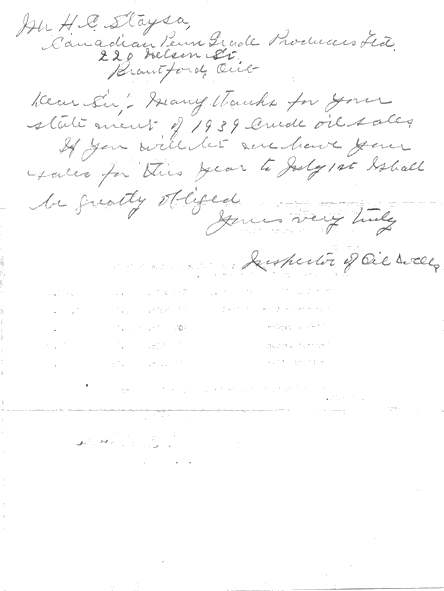 Mr H. C. Slaysa,
Canadian Penn Grade Producers Ltd.
220 Nelson St
Brantford, Ont
Dear Sir;- Many thanks for your
statement of 1939 Crude oil sales
If you will let me have your
sales for this year to July 1st I shall
be greatly obliged
Yours very truly
Inspector of Oil Wells